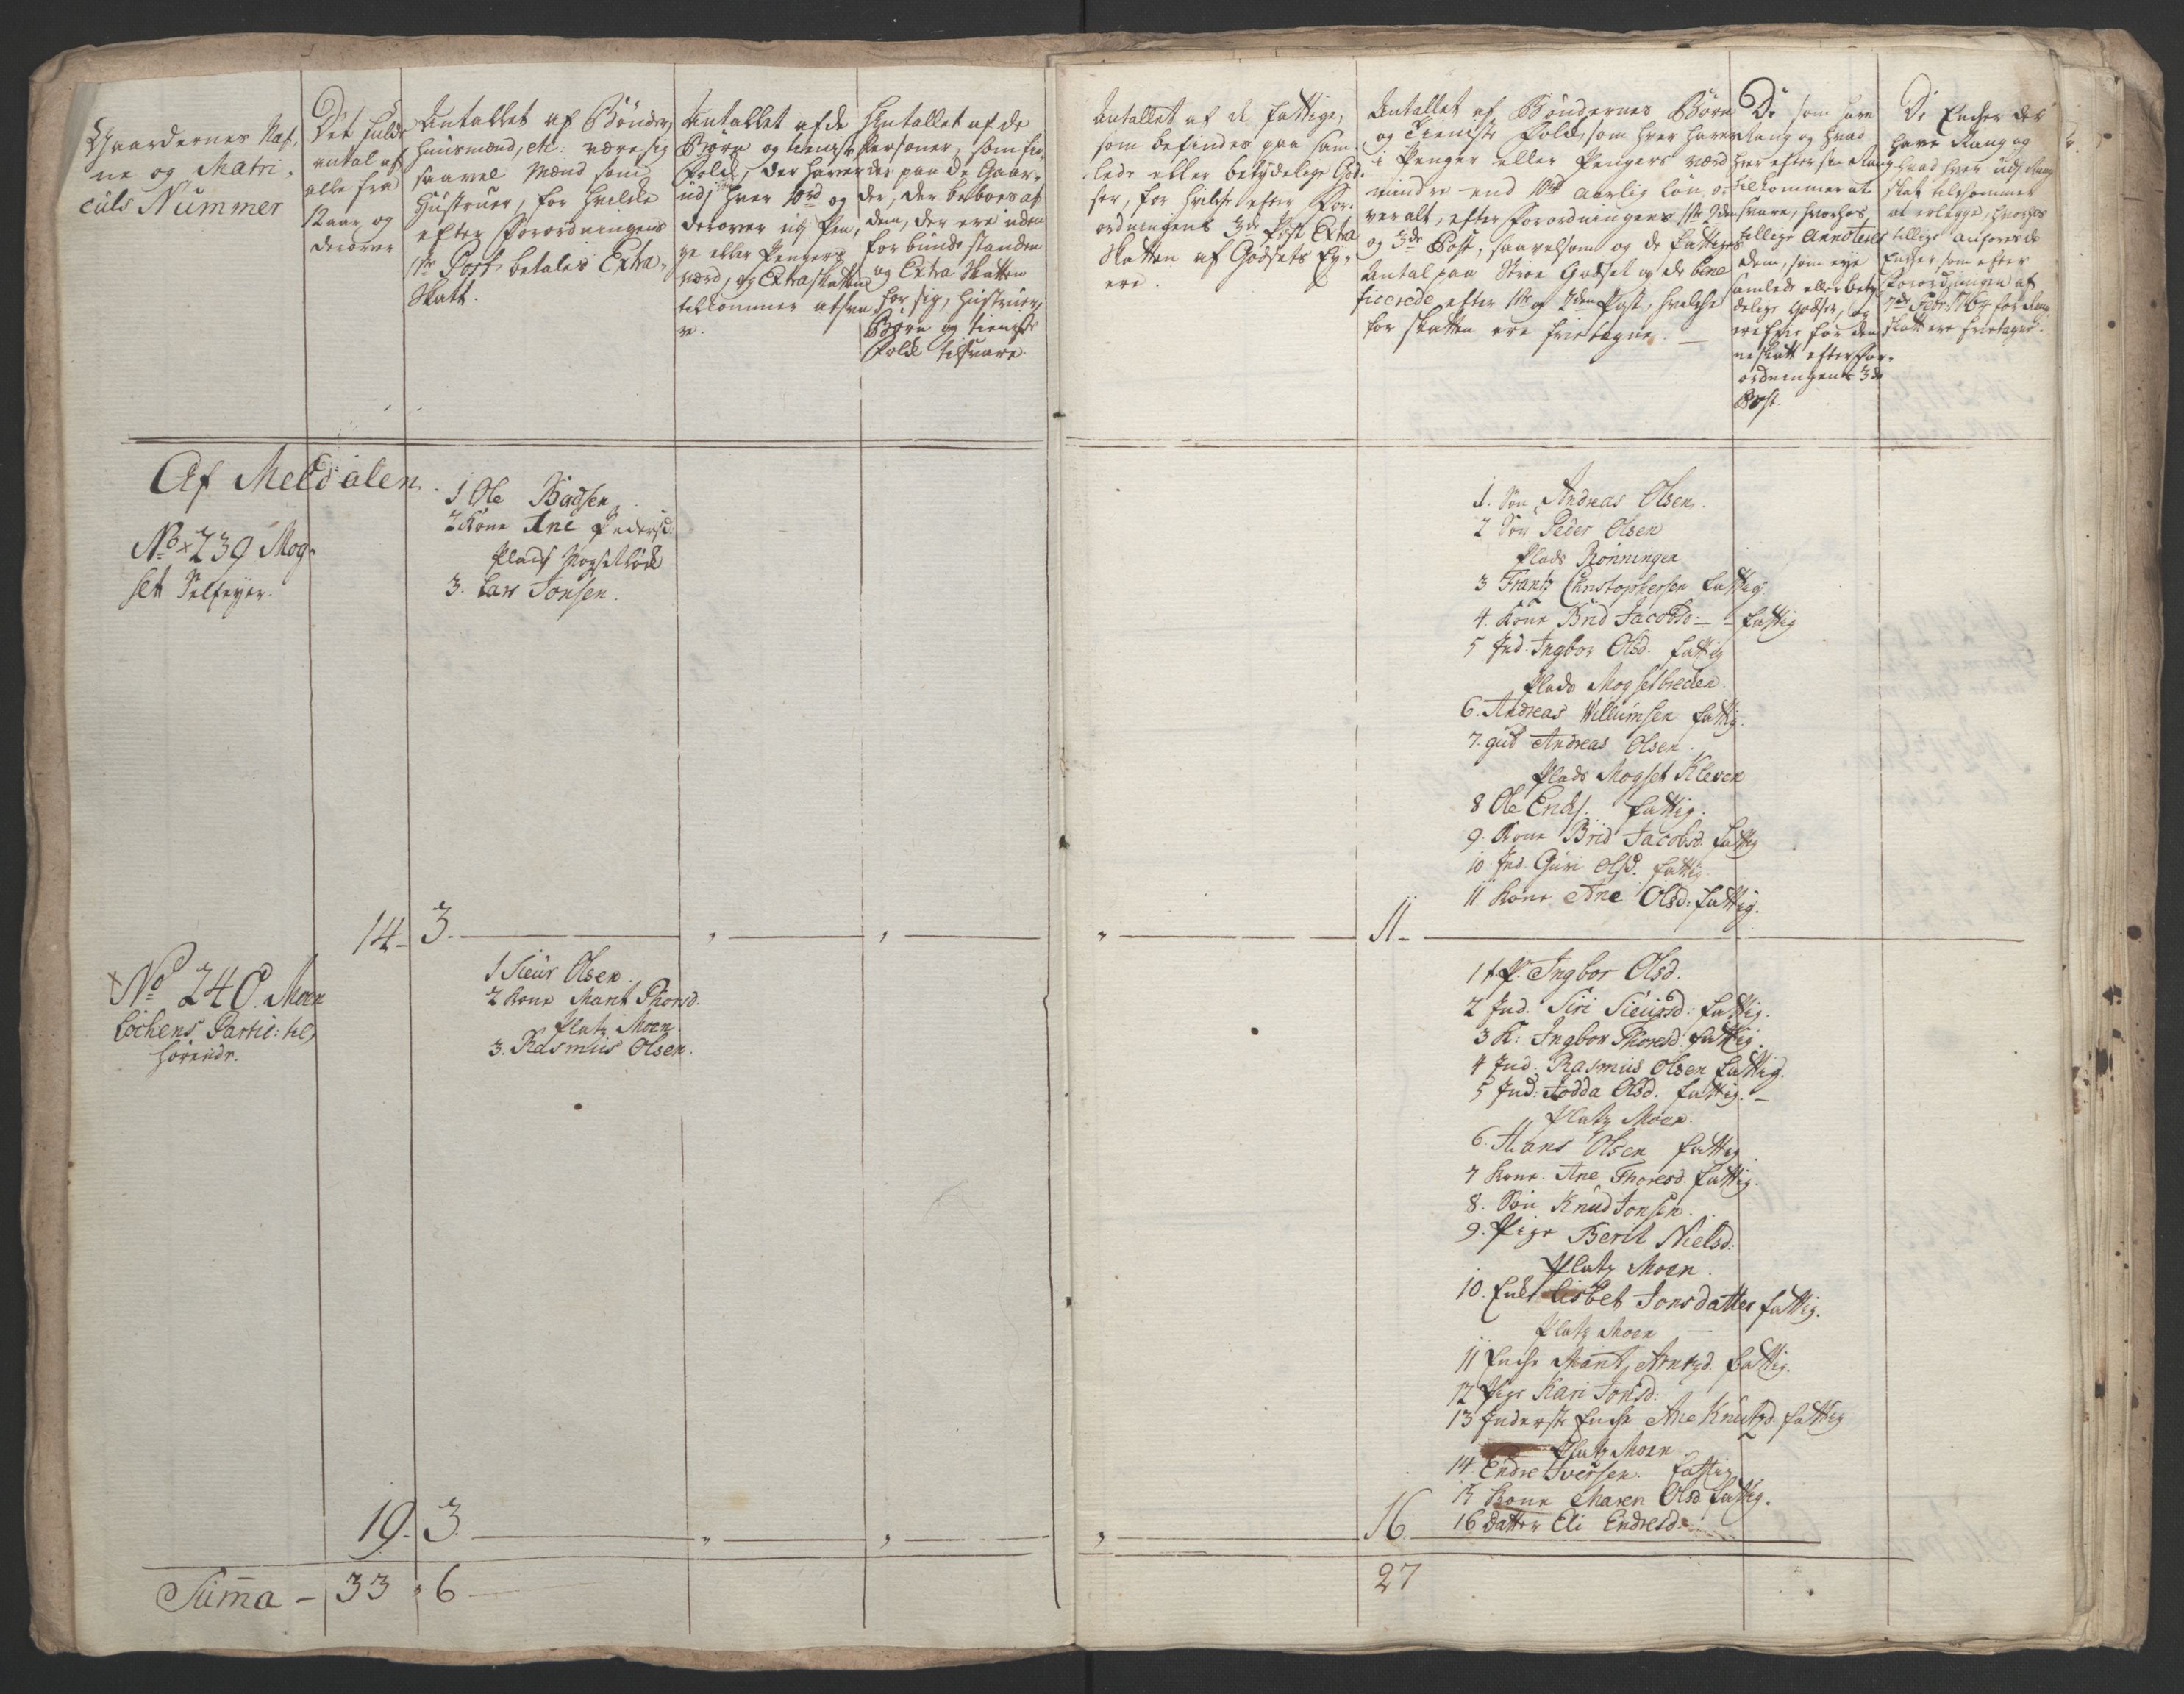 Gaardernes Naf,
ne og Matri,
culs Nummer
Det fulde
antal af
alle fra
12 aar og
derover
Antallet af Bønder,
Huusmænd, etc. være sig
saa vel Mænd som
Hustruer, for hvilke
efter Forordningens
1te Post betales Extra-
Skatt.
Antallet af de
Børn og tieneste
Folk, der haver
udj hver 10rd og
derover udj Pen,
ge eller Penges
værd, og Extraskatten
tilkommer at sva,
re.
Antallet af de
Personer, som fin,
des paa de Gaar,
der, der beboes af
dem, der ere uden
for bunde standen
og Extra Skatten
for sig, Hustruer,
Børn og tieneste
Folk tilsvare
Antallet af de fattige,
som befindes paa sam-
lede eller betydelige God-
ser, for hvilke efter For-
ordningens 3de Post Extra
Skatten af Godsets Ey-
ere.
Antallet af Bøndernes Børn
og Tieneste Folk, som hver haver
i Penger eller Pengers værd
mindre end 10rd aarlig Løn, o-
ver alt, efter Forordningens 1te 2den
og 3de Post, saavelsom og de fattiges
Antal paa Strøe Godset og de bene
ficerede efter 1te og 2den Post, hvilke
for skatten ere fritagne. —
De som have
Rang og hvad
hver efter sin Rang
tilkommer at
svare, hvorhos
tillige Annoteres
dem, som eye
samlede eller bety-
delige Godser, og
ere frie for den-
ne skatt efter For-
ordningens 3de
Post.
De Encker der
have Rang og
hvad hver udj Rang
skat tilkommer
at erlegge, hvorhos
tillige anføres de
Encker som efter
Forordningen af
7de Febr. 1764 for Rang
skatt ere fritagne.
Af Meldalen
No 239 Mog-
set Selfeyer.
1 Ole Baarsen
2 Kone Ane Pedersd:
Plads Mogsetløck
3. Lars Jonsen.
1. Søn Andreas Olsen.
2 Søn Peder Olsen
Plads Rønningen
3 Frantz Christophersen fattig
4. Kone Brid Jacobsd: — fattig
5 Ind. Ingbor Olsd. fattig
Plads Mogsetbreden.
6. Andreas Willumsen fattig.
7. gut Andreas Olsen.
Plads Mogset Kleven
8 Ole Endr. fattig.
9. Kone Brid Jacobsd. fattig
10 Ind. Guri Olsd. fattig
11 Kone Ane Olsd: fattig.
14 3. " " " 11
No 240. Moen
Løchens Partic: til,
hørende.
1 Sieur Olsen.
2 Kone Marit Thoresd.
Platz Moen.
3. Rasmus Olsen.
1 P. Ingbor Olsd.
2 Ind. Siri Sieursd: fattig.
3 K: Ingbor Thoresd. fattig.
4 Ind. Rasmus Olsen fattig.
5 Ind: Jodda Olsd. fattig. —
Platz Moen.
6. Hans Olsen fattig
7 Kone. Ane Thoresd. fattig.
8. Søn Knud Jonsen.
9. Pige Berit Nielsd:
Platz Moen.
10. Enke Lisbet Jonsdatter fattig.
Platz Moen
11 Encke Marit Arntzd. fattig.
12 Pige Kari Jonsd:
13 Inderste Encke Ane Knutzd. fattig
Platz Moen
14 Endre Iversen. fattig
15 Kone Maren Olsd fattig.
16 Datter Eli Endresd:
19. 3. " " " 16
Summa — 33 " 6 27